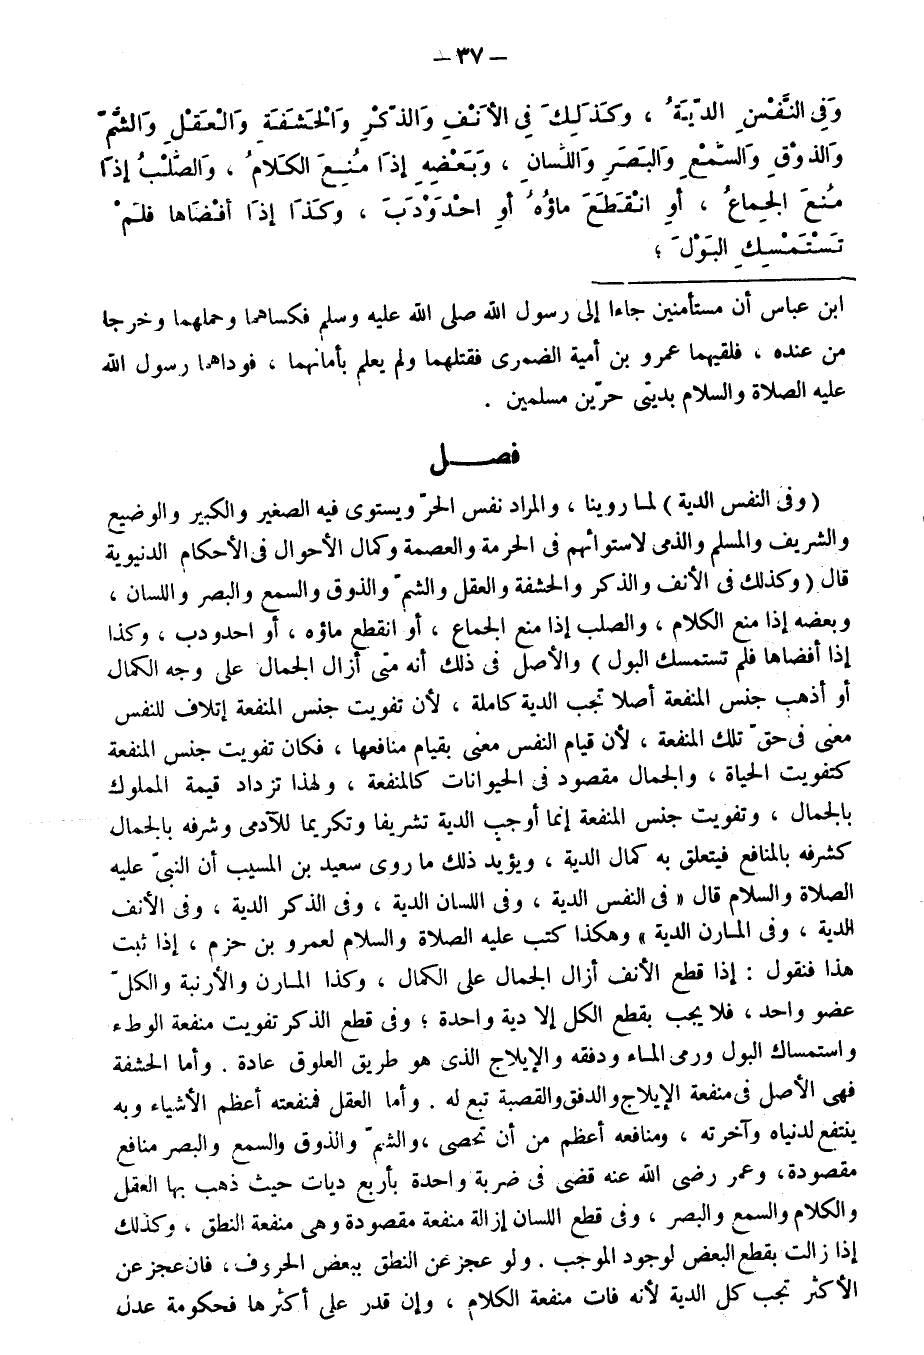 – ٣٧ –
وَفِى النَّفْسِ الدّيَةُ ، وكَذَلِكَ فِى الأنْفِ وَالذّكَرْ وَالْحَشَفَةِ وَالْعَقْلِ وَالشَّمّ
وَالذوْقِ وَالسّمْعِ وَالبَصَرِ وَاللّسَانِ ، وَبَعْضِهِ إذَا مُنِعَ الكَلامُ ، وَالصُّلْبُ إذَا
مُنعَ الجِماعُ ، أوِ انْقَطَعَ ماؤُهُ أوِ احْدَوْدَبَ ، وكَذَا إذَا أفْضَاها فلَمْ
تَسْتَمْسِكِ البَوْلَ ؛
ابن عباس أن مستأمنين جاءا إلى رسول الله صلى الله عليه وسلم فكساهما وحملهما وخرجا
من عنده ، فلقيهما عمرو بن أمية الضمرى فقتلهما ولم يعلم بأمانهما ، فوداهما رسول الله
عليه الصلاة والسلام بديتى حرّين مسلمين .
فصــــل
( وفى النفس الدية ) لما روينا ، والمراد نفس الحرّ ويستوى فيه الصغير والكبير والوضيع
والشريف والمسلم والذمى لاستوائهم فى الحرمة والعصمة وكمال الأحوال فى الأحكام الدنيوية
قال ( وكذلك فى الأنف والذكر والحشفة والعقل والشمّ والذوق والسمع والبصر واللسان ،
وبعضه إذا منع الكلام ، والصلب إذا منع الجماع ، أو انقطع ماؤه ، أو احدودب ، وكذا
إذا أفضاها فلم تستمسك البول ) والأصل فى ذلك أنه متى أزال الجمال على وجه الكمال
أو أذهب جنس المنفعة أصلا تجب الدية كاملة ، لأن تفويت جنس المنفعة إتلاف للنفس
معنى فى حقّ تلك المنفعة ، لأن قيام النفس معنى بقيام منافعها ، فكان تفويت جنس المنفعة
كتفويت الحياة ، والجمال مقصود فى الحيوانات كالمنفعة ، ولهذا تزداد قيمة المملوك
بالجمال ، وتفويت جنس المنفعة إنما أوجب الدية تشريفا وتكريما للآدمى وشرفه بالجمال
كشرفه بالمنافع فيتعلق به كمال الدية ، ويؤيد ذلك ما روى سعيد بن المسيب أن النبىّ عليه
الصلاة والسلام قال « فى النفس الدية ، وفى اللسان الدية ، وفى الذكر الدية ، وفى الأنف
الدية ، وفى المارن الدية » وهكذا كتب عليه الصلاة والسلام لعمرو بن حزم ، إذا ثبت
هذا فنقول : إذا قطع الأنف أزال الجمال على الكمال ، وكذا المارن والأرنبة والكلّ
عضو واحد ، فلا يجب بقطع الكل إلا دية واحدة ؛ وفى قطع الذكر تفويت منفعة الوطء
واستمساك البول ورمى الماء ودفقه والإيلاج الذى هو طريق العلوق عادة . وأما الحشفة
فهى الأصل فى منفعة الإيلاج والدفق والقصبة تبع له . وأما العقل فمنفعته أعظم الأشياء وبه
ينتفع لدنياه وآخرته ، ومنافعه أعظم من أن تحصى ،والشمّ والذوق والسمع والبصر منافع
مقصودة، وعمر رضى الله عنه قضى فى ضربة واحدة بأربع ديات حيث ذهب بها العقل
والكلام والسمع والبصر ، وفى قطع اللسان إزالة منفعة مقصودة وهى منفعة النطق ، وكذلك
إذا زالت بقطع البعض لوجود الموجب . ولو عجز عن النطق ببعض الحروف، فان عجز عن
الأكثر تجب كل الدية لأنه فات منفعة الكلام ، وإن قدر على أكثرها فحكومة عدل